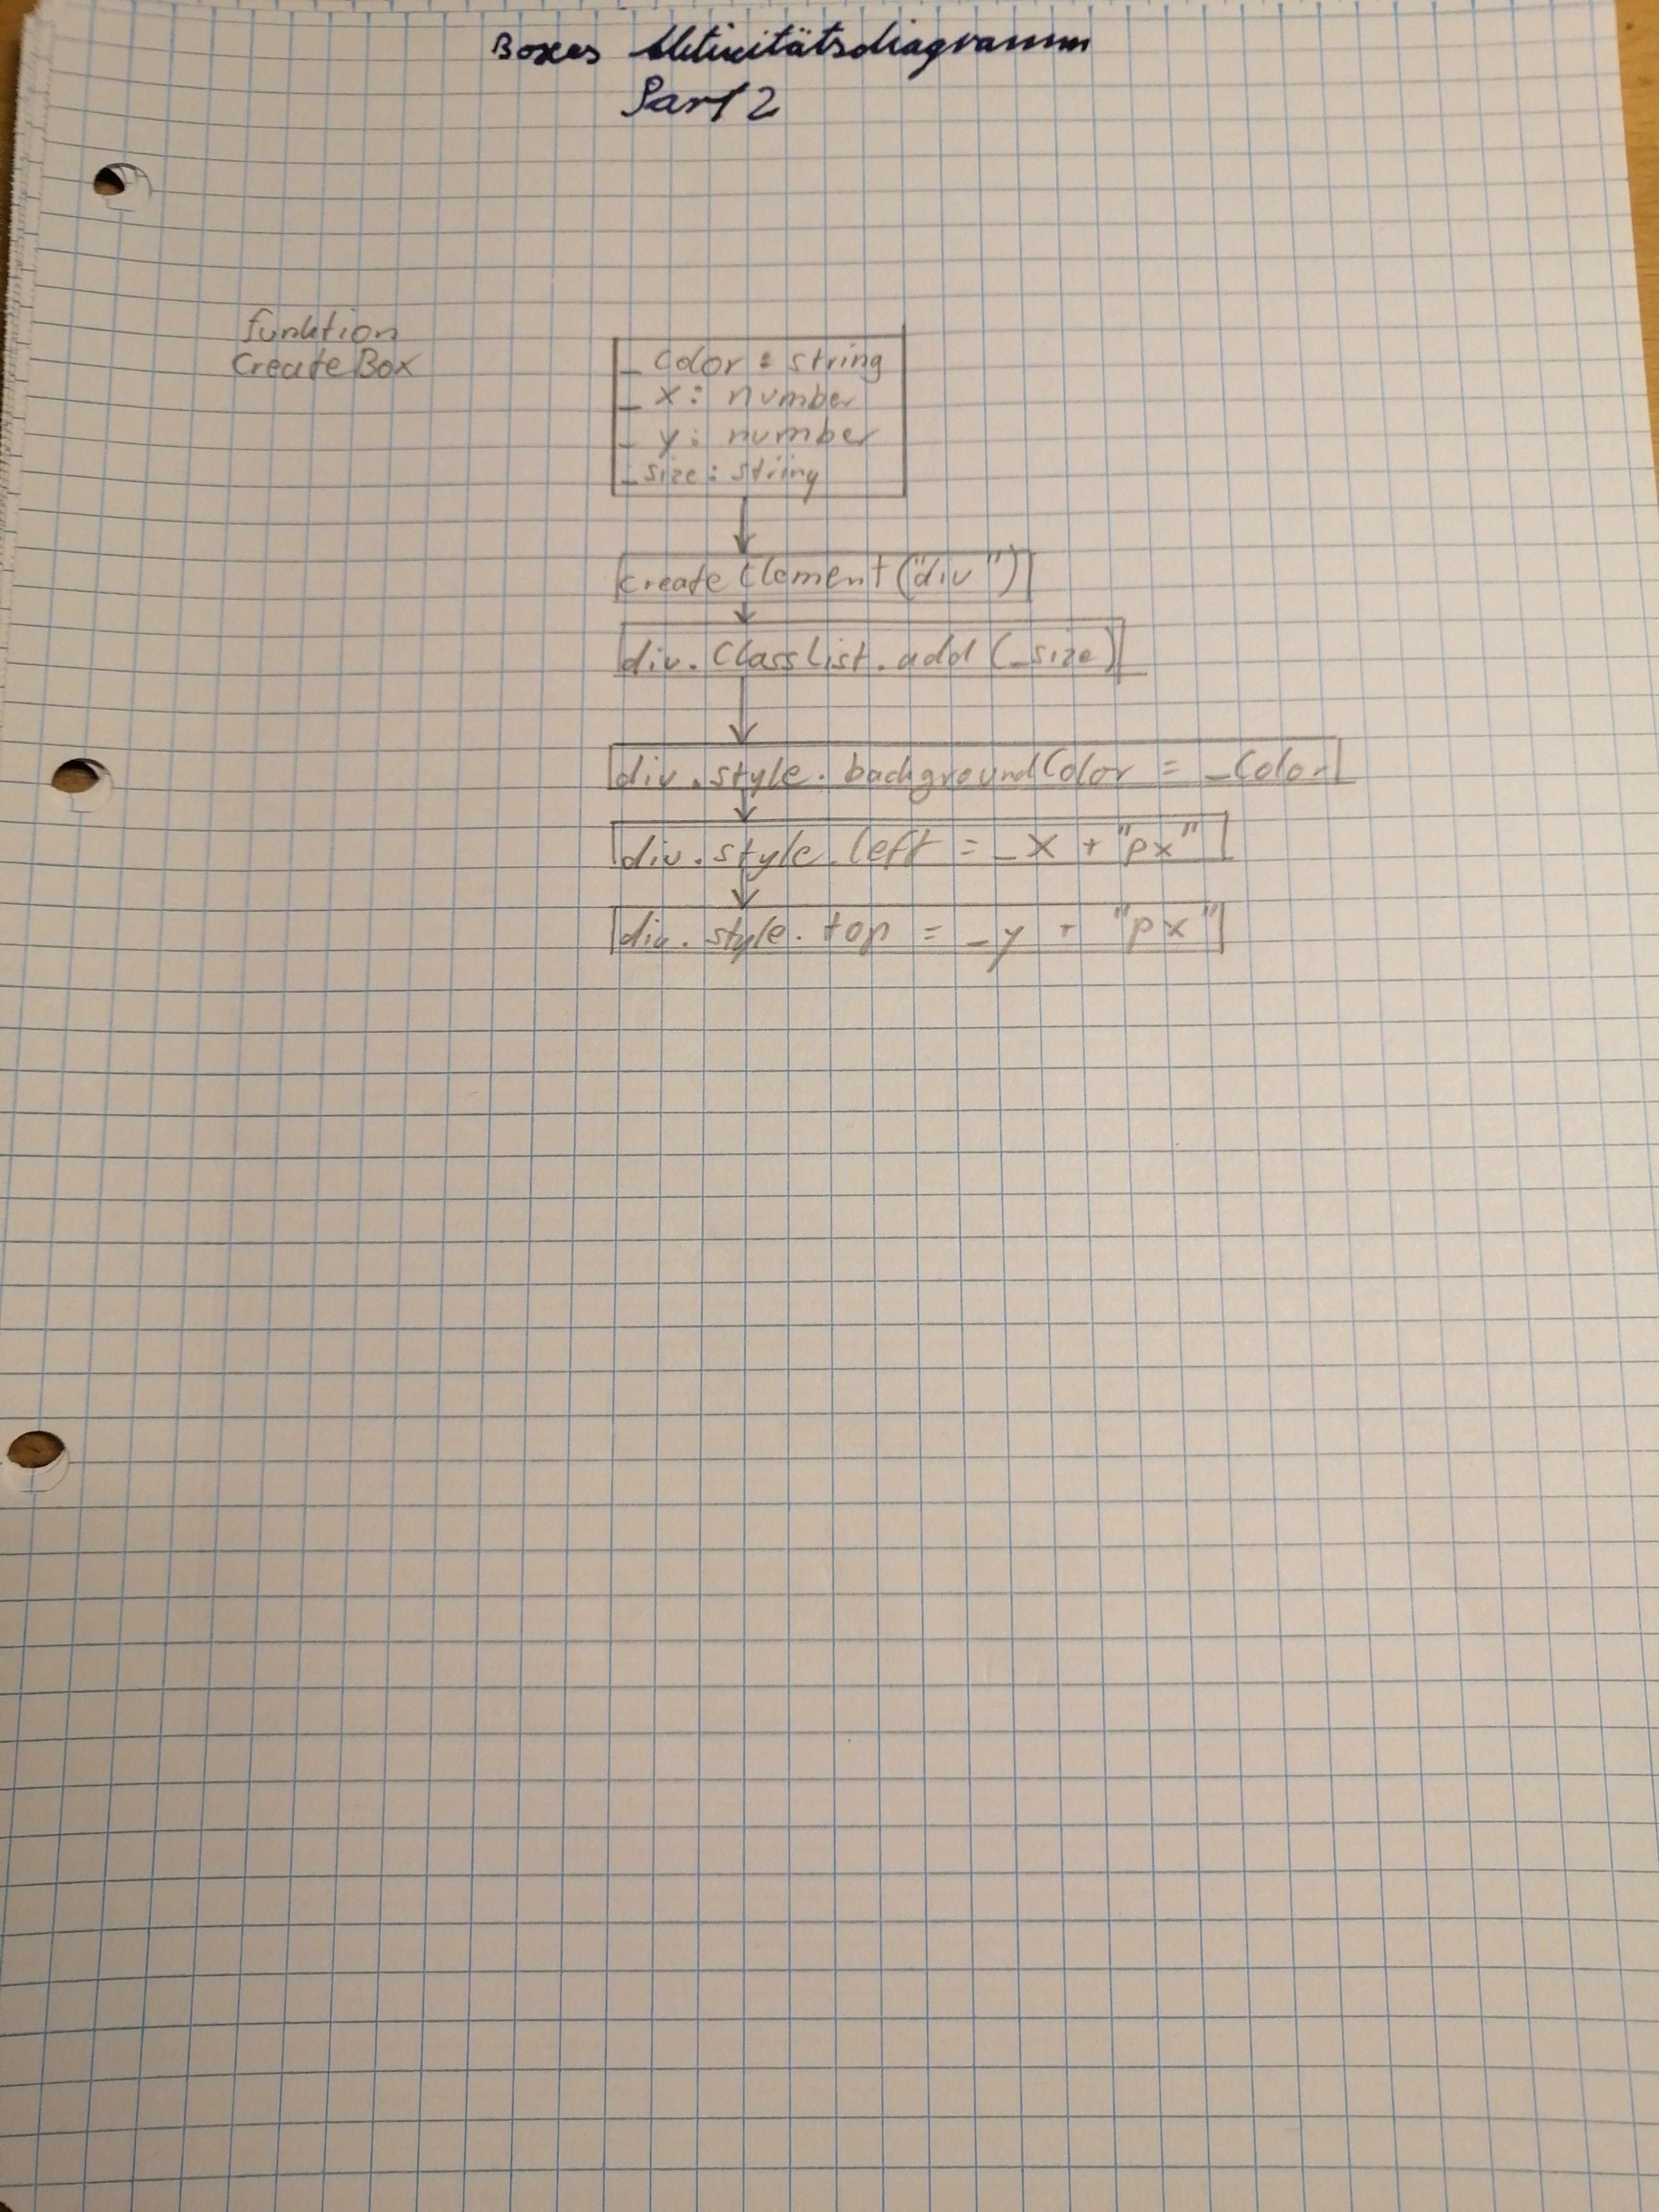 Boxes Aktivitätsdiagramm
Part 2
funktion
CreateBox
_ Color : string
_ x : number
_ y : number
_size : string
create Element ("div")
div. ClassList. add (_size)
div. style. backgroundColor = _Color
div. style. left = _X + "px"
div. style. top = _y + "px"